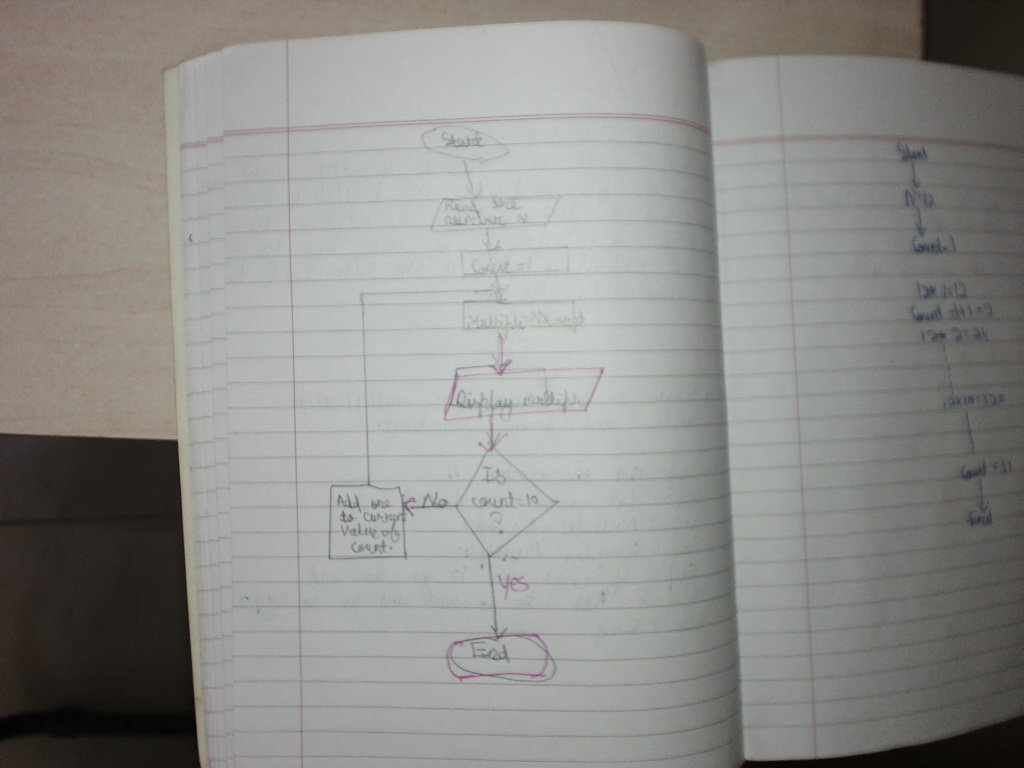 Start
Read the
number N
Count = 1
Multiple = NX
Display
Is
count=10
?
No
Add one
to current
Value of
Count.
Yes
End
Start
N=12
Count=1
12x1=12
Count
12x2=24
12x10=120
Count = 11
End